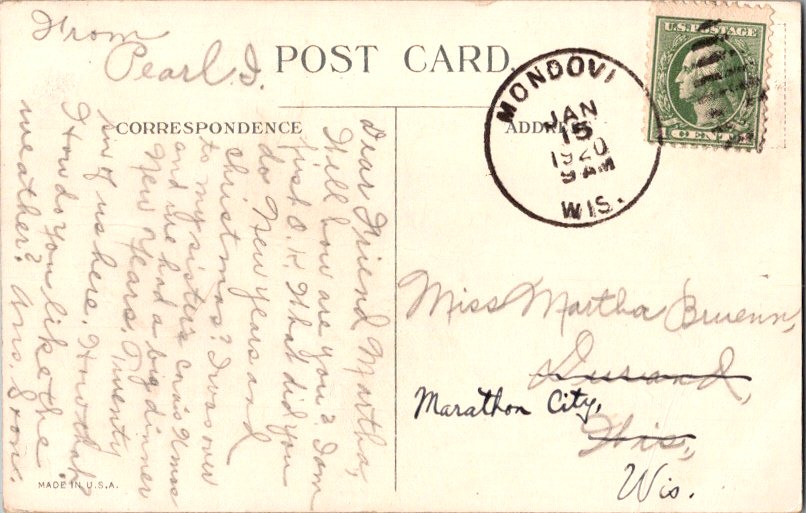 From
Pearl I.
POST CARD.
CORRESPONDENCE
ADDRESS
MONDOVI
JAN
15
1920
9 AM
WIS.
U.S. POSTAGE
1 CENT
Dear Friend Martha,
Well how are you? I am
just O.K. What did you
do New years and
christmas? I was over
to my sisters christmas
and we had a big dinner
New Years. Twenty
of us here. How that?
How do you like the
weather? Ans. soon.
Miss Martha Bruenn,
Durand,
Marathon City,
Wis.,
Wis.
MADE IN U.S.A.